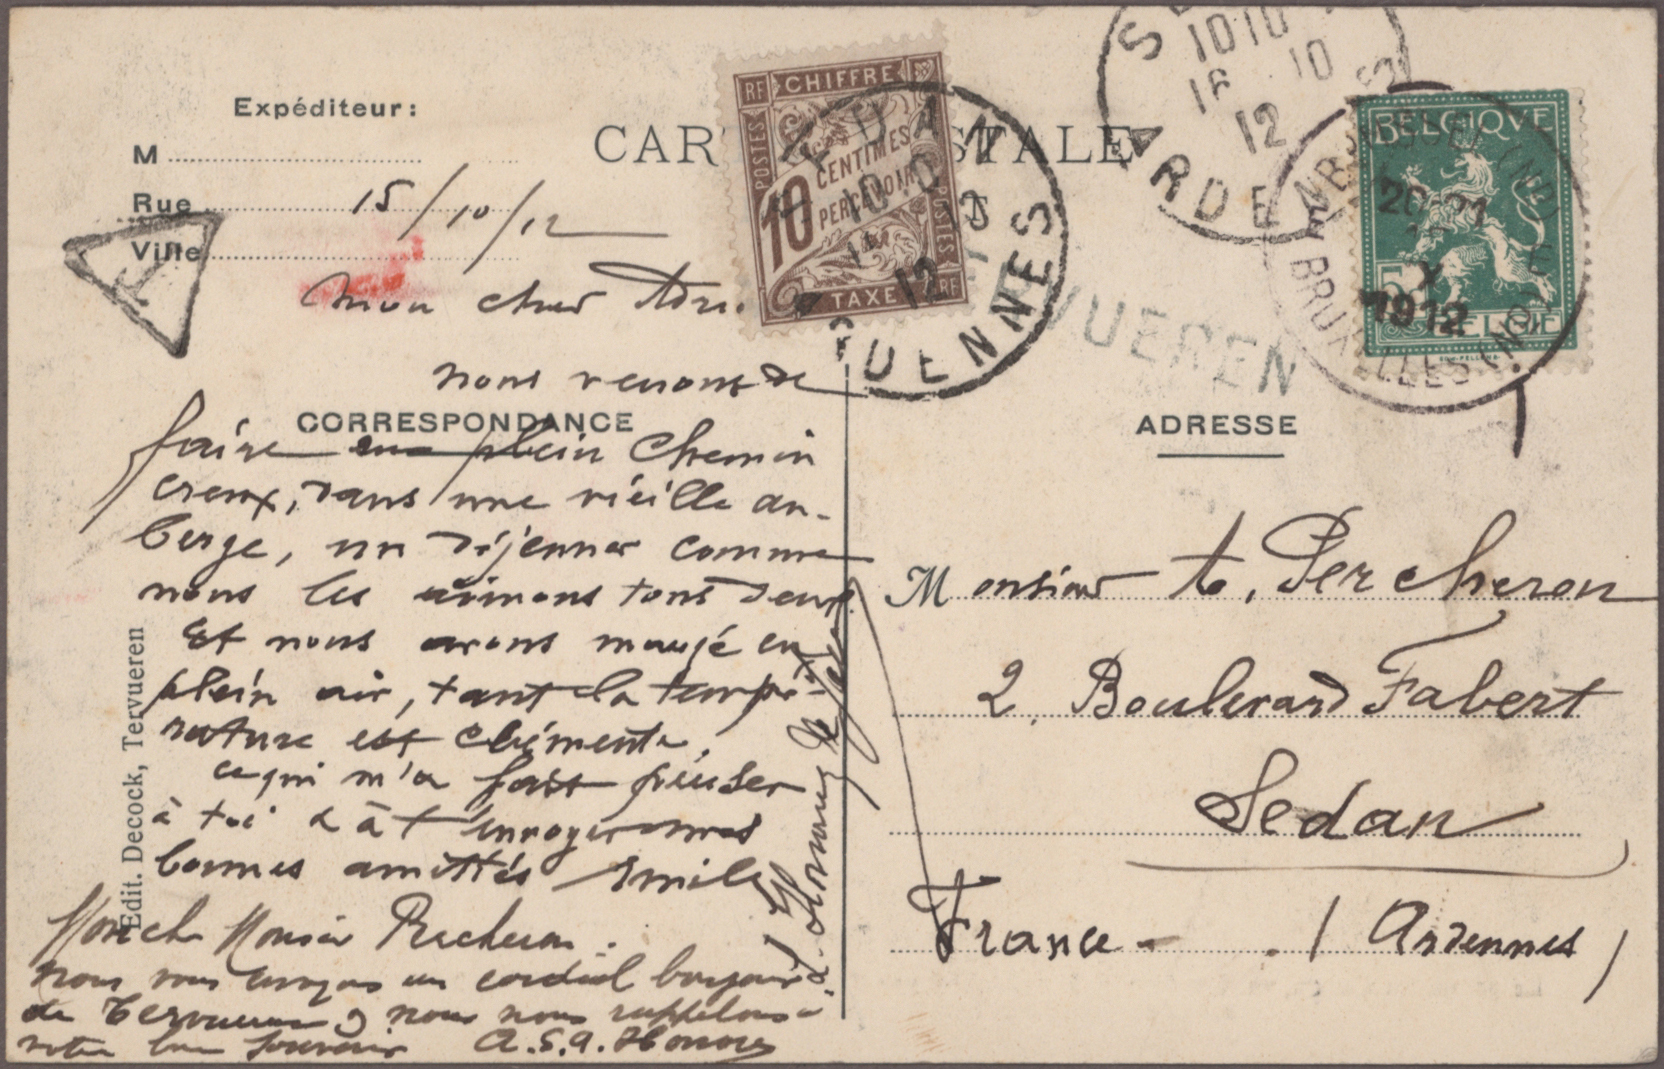 Expéditeur:
M
Rue
Ville
T
15/10/12
CARTE POSTALE
RF CHIFFRE
POSTES
10 CENTIMES
PERCEVOIR
POSTES
TAXE RF
SEDAN
10 10
12
ARDENNES
1010
16 10
12
ARDE
BELGIQUE
5
BELGIË
BRUXELLES (NORD)
20-21
X
1912
VUEREN
Mon cher
nous venons de
CORRESPONDANCE
faire en plein chemin
creux, dans une vieille au-
berge, un déjeuner comme
nous les aimons tous deux.
Et nous avons mangé en
plein air, tant la tempé-
rature est clémente,
ce qui m'a fait penser
à toi & à t'envoyer mes
bonnes amitiés Emile
Mon cher Monsieur Percheron.
Nous vous envoyons un cordial bonjour
de Tervueren & nous nous rappelons à
votre bon souvenir A.S.A. Honorez
Edit. Decock, Tervueren
ADRESSE
Monsieur A. Percheron
2, Boulevard Fabert
Sedan
France - (Ardennes)